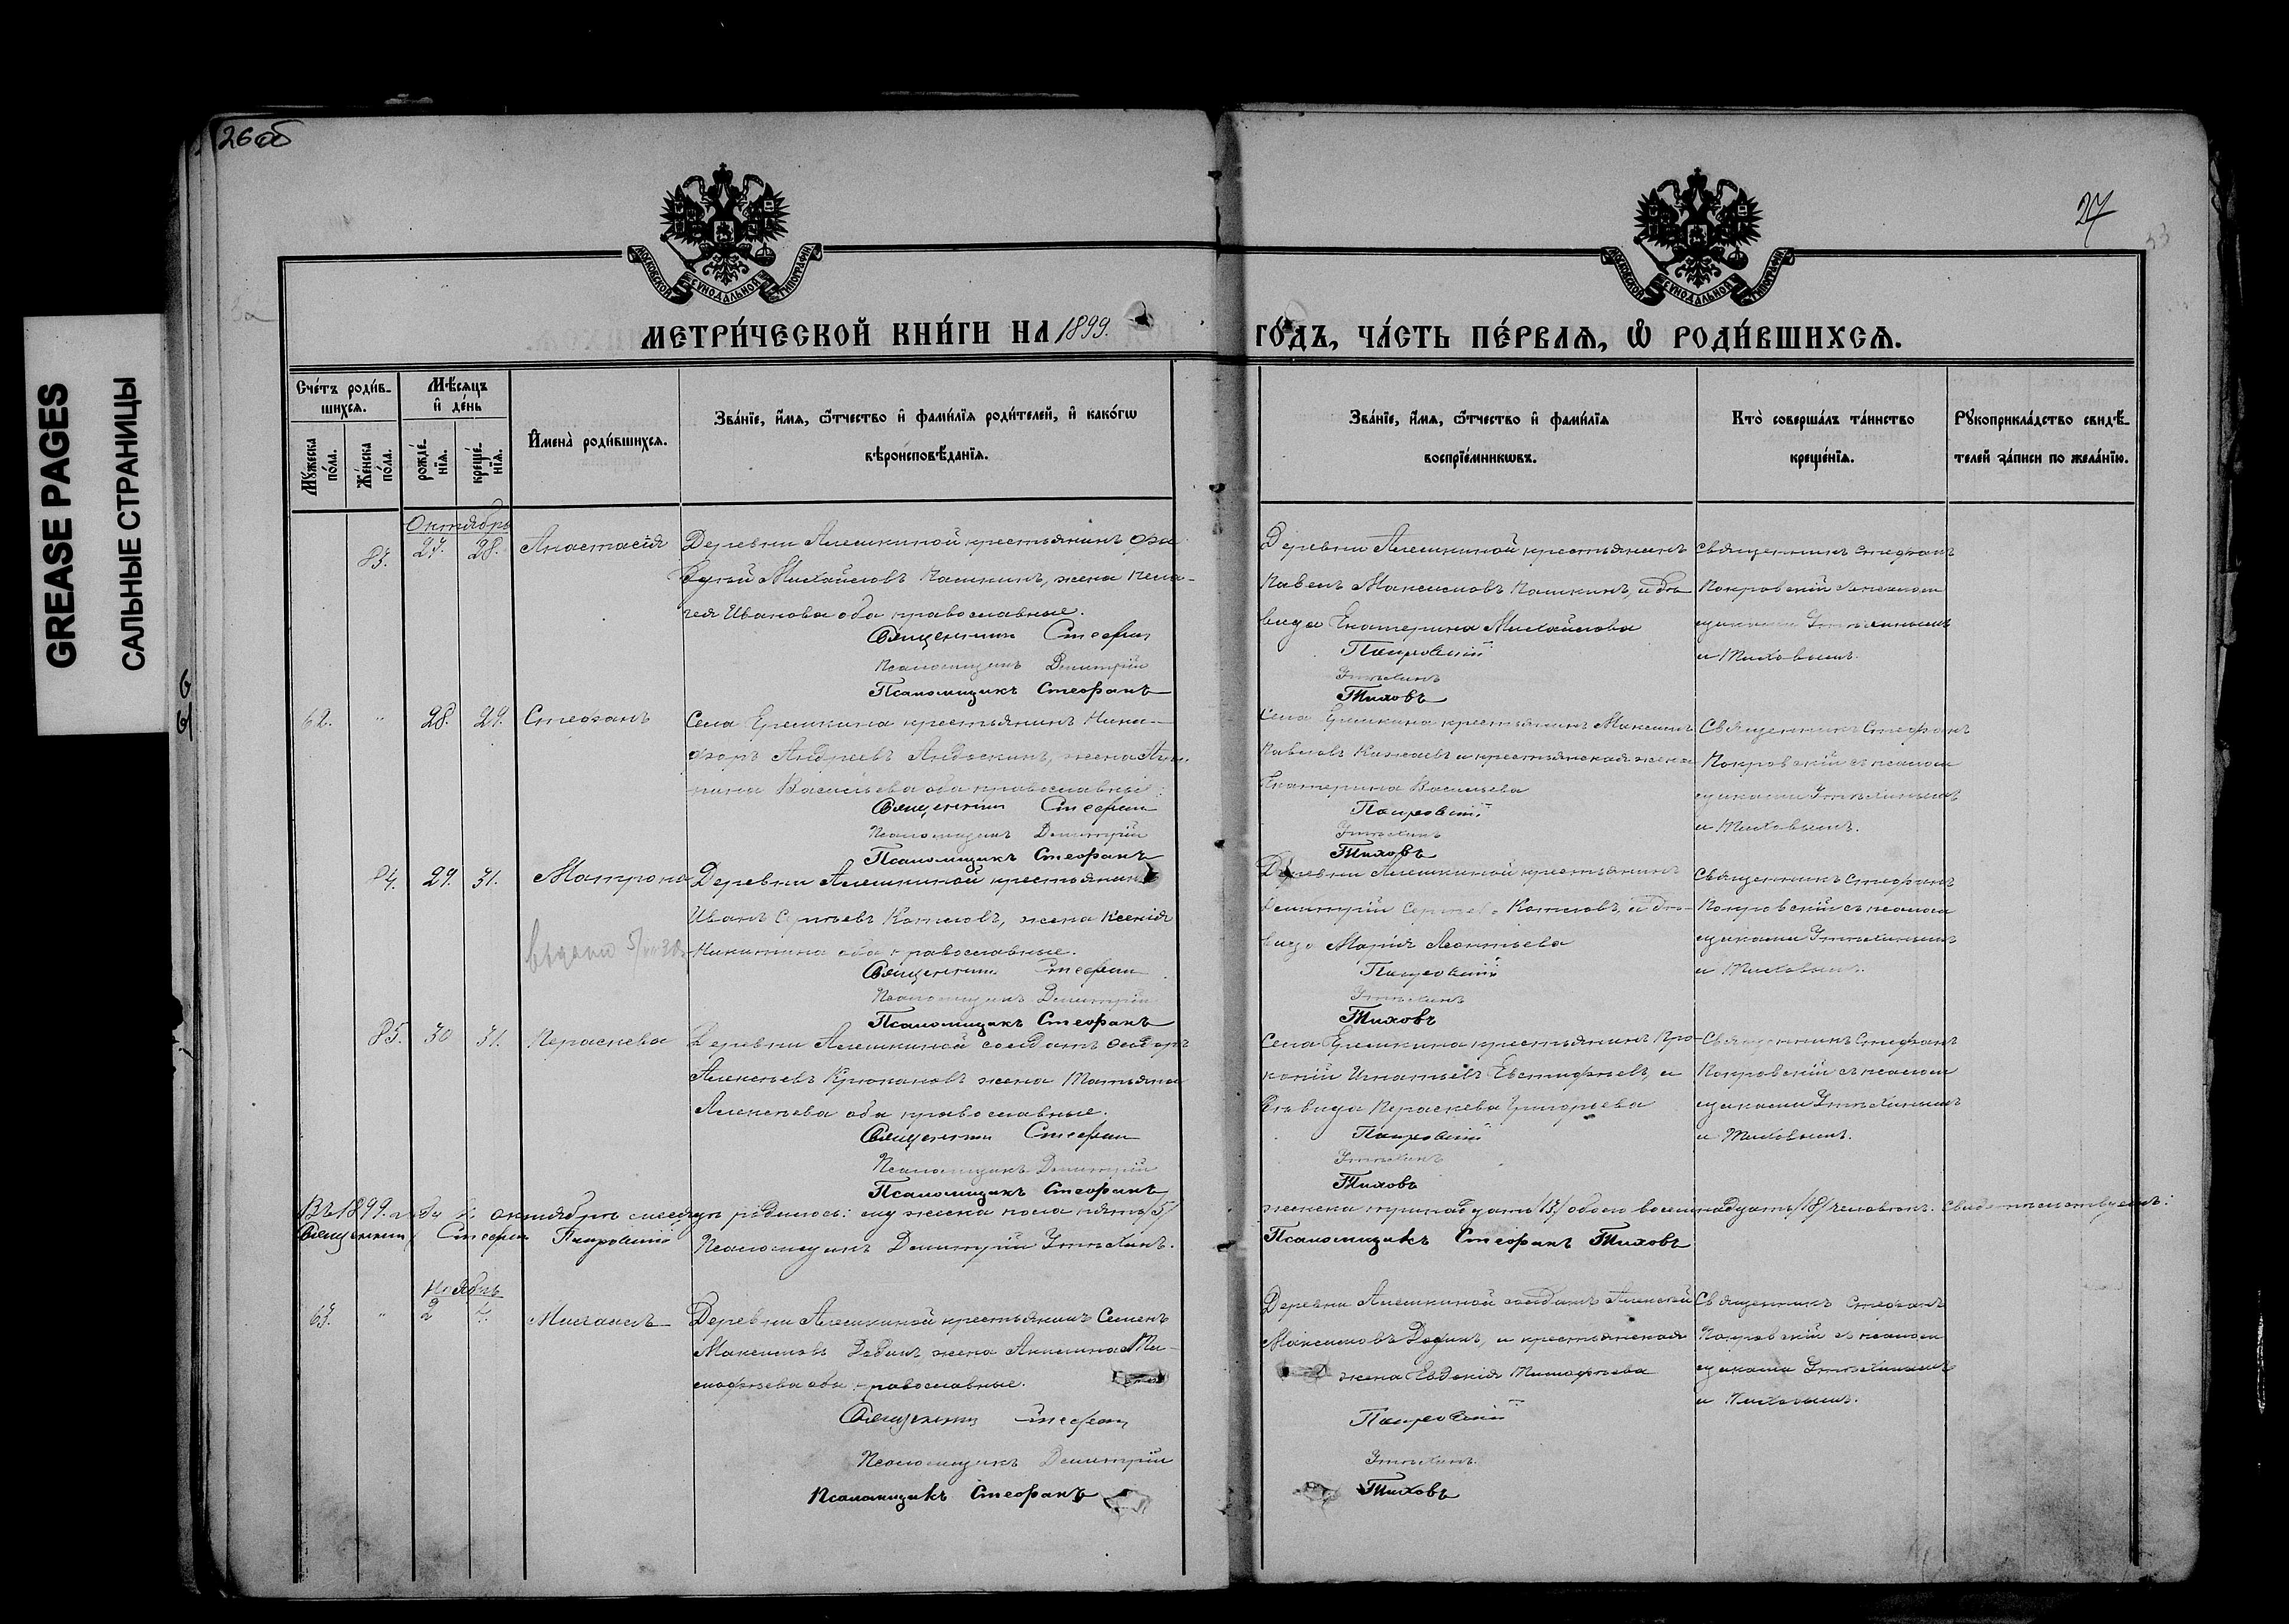 26 об
27
53
GREASE PAGES
САЛЬНЫЕ СТРАНИЦЫ
МОСКОВСКОЙ СѴНОДАЛЬНОЙ ТИПОГРАФІИ
МОСКОВСКОЙ СѴНОДАЛЬНОЙ ТИПОГРАФІИ
МЕТРИ́ЧЕСКОЙ КНИ́ГИ НА 1899.
ГО́ДЪ, ЧА́СТЬ ПЕ́РВАѦ, Ѡ҆ РОДИ́ВШИХСѦ.
Сче́тъ роди́в-
шихсѧ.
Мꙋ́жеска
по́ла.
Же́нска
по́ла.
Мѣ́сяцъ
и҆ де́нь
рожде́-
нїѧ.
креще́-
нїѧ.
И҆мена̀ роди́вшихсѧ.
Зва́нїе, и҆́мѧ, ѻ҆́тчество и҆ фами́лїѧ роди́телей, и҆ како́гѡ
вѣроисповѣ́данїѧ.
Зва́нїе, и҆́мѧ, ѻ҆́тчество и҆ фами́лїѧ
воспрїе́мникѡвъ.
Кто̀ соверша́лъ та́инство
креще́нїѧ.
Рꙋкоприкла́дство свидѣ́-
телей за́писи по жела́нїю.
Октябрь
83. 27. 28. Анастасія
Деревни Алешкиной крестьянинъ
Михайловъ Пашкинъ, жена Пела-
гея Иванова оба православные.
Священникъ Стефан
Псаломщикъ Димитрій
Псаломщикъ Стефанъ
Деревни Алешкиной крестьянинъ
Павелъ Максимовъ Пашкинъ, и дѣ-
вица Екатерина Михайлова
Покровскій
Утѣхинъ
Тиховъ
священникъ Стефанъ
Покровскій съ псалом
щиками Утѣхинымъ
и Тиховымъ.
62. " 28. 29. Стефанъ
Села Ерешкина крестьянинъ Ники-
форъ Андреевъ жена
Васильева оба православные.
Священникъ Стефан
Псаломщикъ Димитрій
Псаломщикъ Стефанъ
Села Ерешкина крестьянинъ Максимъ
Павловъ и крестьянская жена
Екатерина Васильева
Покровскій
Утѣхинъ
Тиховъ
Священникъ Стефанъ
Покровскій съ псалом
щиками Утѣхинымъ
и Тиховымъ.
84. 29. 31. Матрона
Деревни Алешкиной крестьянинъ
Иванъ Сергѣевъ Котловъ, жена Ксенія
Никитина оба православные.
Священникъ Стефан
Псаломщикъ Димитрій
Псаломщикъ Стефанъ
Деревни Алешкиной крестьянинъ
Димитрій Сергѣевъ Котловъ, и дѣ-
вица Марія Леонтьева
Покровскій
Утѣхинъ
Тиховъ
Священникъ Стефанъ
Покровскій съ псалом
щиками Утѣхинымъ
и Тиховымъ.
85. 30 31. Параскева
Деревни Алешкиной солдатъ
Алексѣевъ Крюкановъ жена Татьяна
Алексѣева оба православные.
Священникъ Стефан
Псаломщикъ Димитрій
Псаломщикъ Стефанъ
Села Ерешкина крестьянинъ Про-
копій Игнатьевъ Евстифѣевъ, и
дѣвица Параскева Григорьева
Покровскій
Утѣхинъ
Тиховъ
Священникъ Стефанъ
Покровскій съ псалом
щиками Утѣхинымъ
и Тиховымъ.
Въ 1899 октябрѣ мѣсяцѣ родилось: мужеска пола пять /5/
женска тринадцать /13/ обоего восемнадцать /18/ человѣкъ. свидѣтельствуемъ:
Священникъ Стефан Покровскій Псаломщикъ Димитрій Утѣхинъ.
Псаломщикъ Стефанъ Тиховъ
Ноябрь
63. " 2 4. Михаилъ
Деревни Алешкиной крестьянинъ Семенъ
Максимовъ Дадинъ жена Акилина Ти-
мофѣева оба православные.
Священникъ Стефан
Псаломщикъ Димитрій
Псаломщикъ Стефанъ
Деревни Алешкиной солдатъ Алексѣй
Максимовъ Дадинъ, и крестьянская
жена Евдокія Тимофѣева
Покровскій
Утѣхинъ.
Тиховъ
Священникъ Стефанъ
Покровскій съ псалом
щиками Утѣхинымъ
и Тиховымъ.